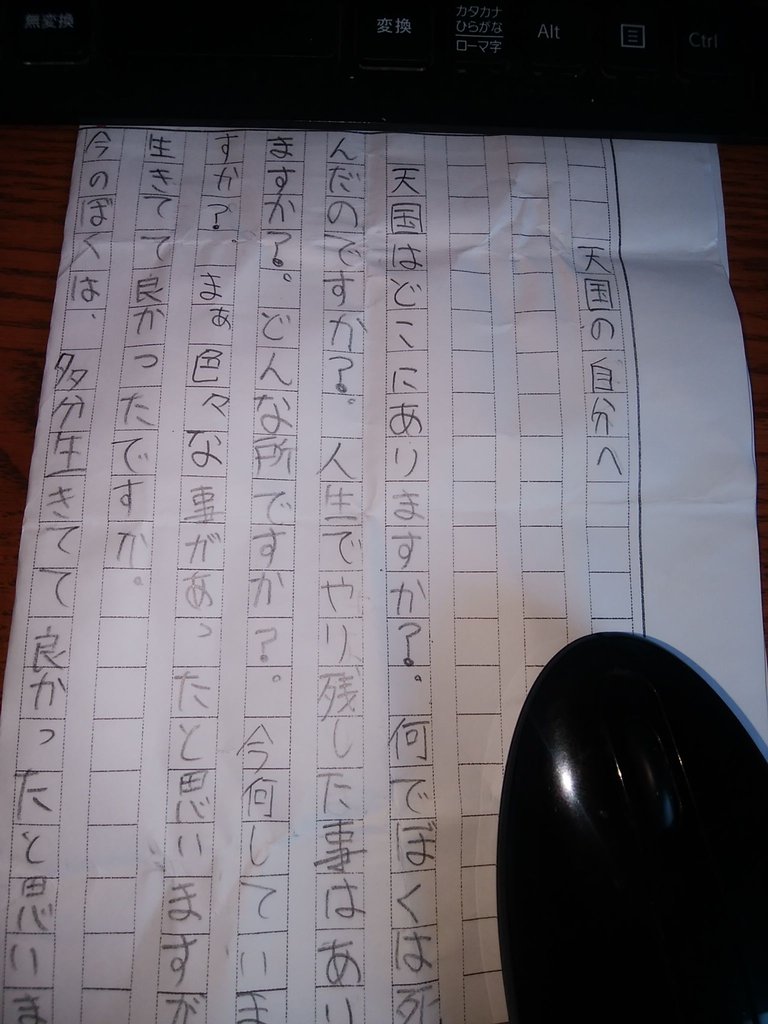 無変換
変換
カタカナ
ひらがな
ローマ字
Alt
Ctrl
天国の自分へ
天国はどこにありますか?。何でぼくは死
んだのですか?。人生でやり残した事はあり
ますか?。どんな所ですか?。今何していま
すか?、まぁ色々な事があったと思いますが
生きてて良かったですか。
今のぼくは、多分生きてて良かったと思いま